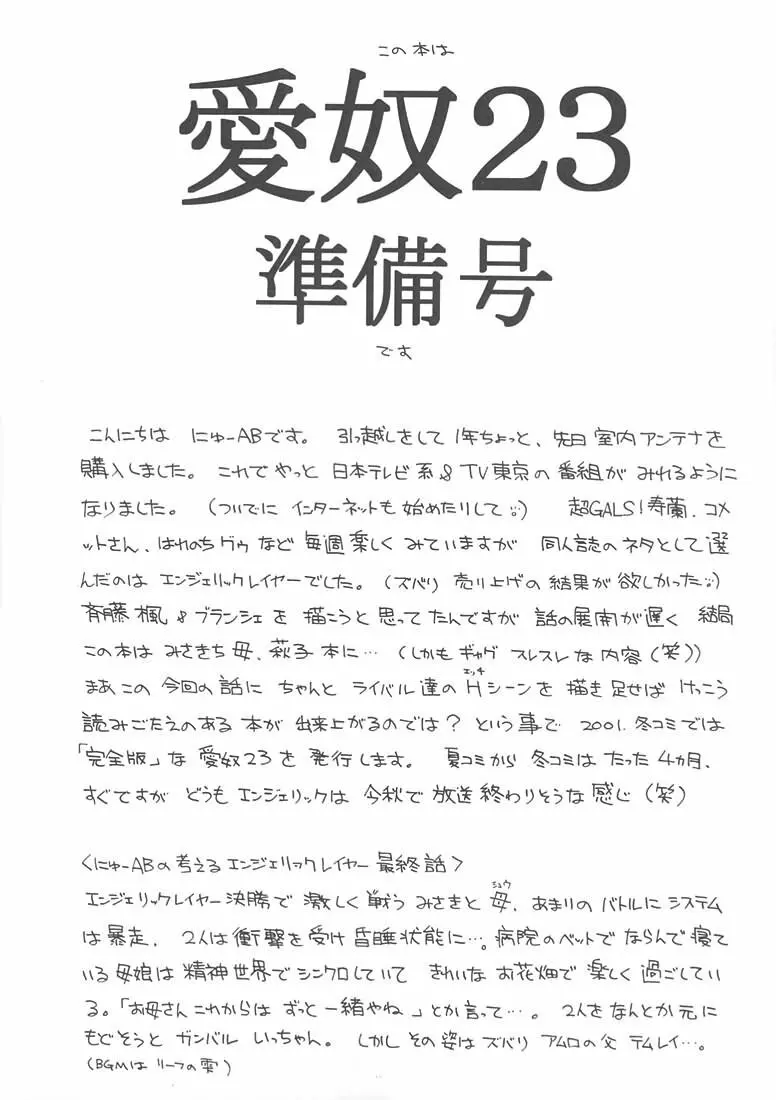 この本は
愛奴23
準備号
です
こんにちは にゅーABです。 引っ越しをして 1年ちょっと、先日 室内アンテナを
購入しました。 これで やっと 日本テレビ系& TV東京の 番組が みれるように
なりました。 (ついでに インターネットも 始めたりして) 超GALS!寿蘭、コメ
ットさん、はれのちグゥ など 毎週 楽しく みていますが 同人誌のネタとして 選
んだのは エンジェリックレイヤーでした。(ズバリ 売り上げの結果が 欲しかった)
斉藤 楓 & ブランシェを 描こうと 思ってたんですが 話の展開が遅く 結局
この本は みさきち 母、萩子 本に… (しかも ギャグ スレスレ な 内容 (笑))
まあ この 今回の 話に ちゃんと ライバル 達の Hシーンを 描き足せば けっこう
エッチ
読みごたえのある 本が 出来上がるのでは? という事で 2001.冬コミでは
「完全版」な 愛奴23を 発行します。 夏コミから 冬コミは たった 4カ月、
すぐですが どうも エンジェリックは 今秋で 放送 終わりそうな 感じ (笑)
〈にゅーABの 考える エンジェリックレイヤー 最終話〉
エンジェリックレイヤー 決勝で 激しく 戦う みさきと 母、あまりの バトルに システム
シュウ
は 暴走、 2人は 衝撃を 受け 昏睡状態に…。病院の ベットで ならんで 寝て
いる 母娘は 精神世界で シンクロしていて きれいな お花畑で 楽しく 過ごしてい
る。「お母さん これからは ずっと 一緒やね」とか言って…。 2人を なんとか 元に
もどそうと ガンバル いっちゃん。 しかし その 姿は ズバリ アムロの父 テムレイ…。
(BGMは リーフの 雫)